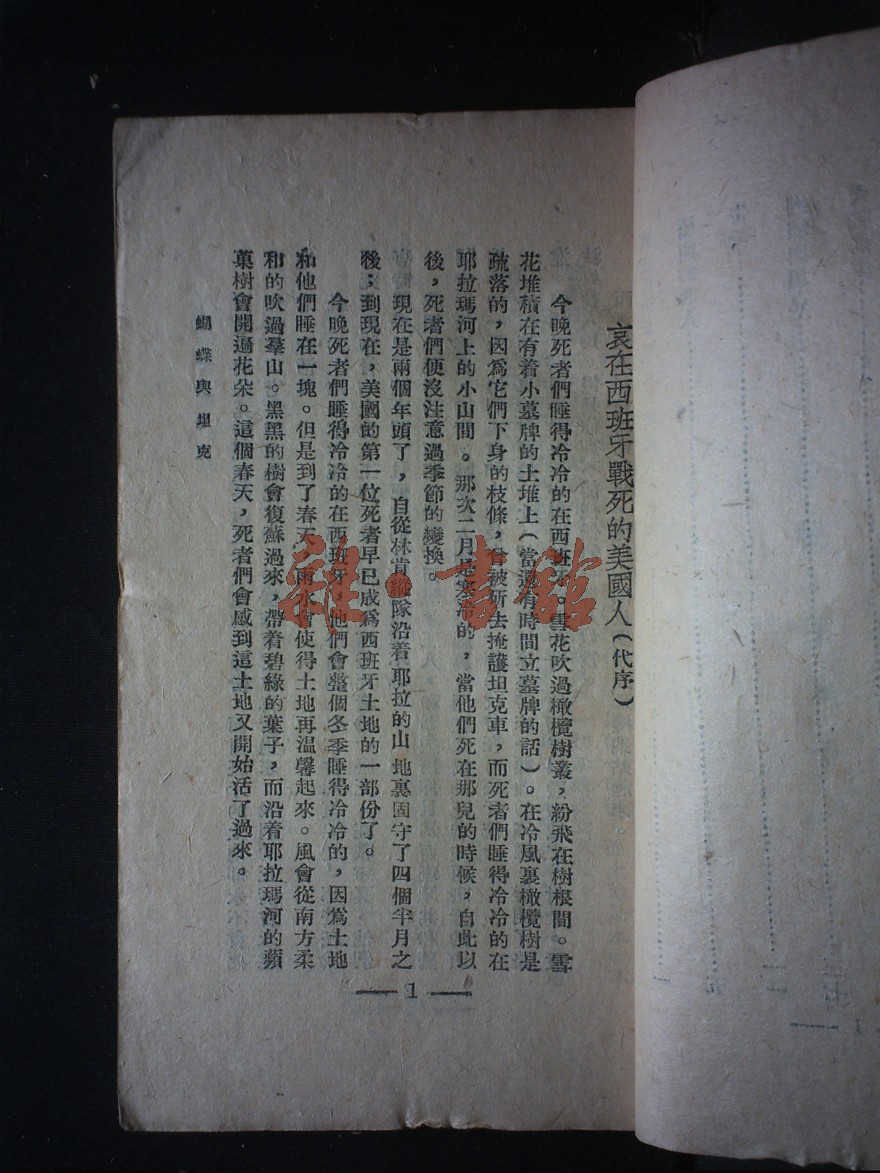 哀在西班牙戰死的美國人(代序)
今晚死者們睡得冷冷的在西班牙。雪花吹過橄欖樹叢，紛飛在樹根間。雪
花堆積在有着小墓牌的土堆上(當還有時間立墓牌的話)。在冷風裏橄欖樹是
疏落的，因爲它們下身的枝條，曾被斫去掩護坦克車，而死者們睡得冷冷的在
耶拉瑪河上的小山間。那次二月是寒冷的，當他們死在那兒的時候，自此以
後，死者們便沒注意過季節的變換。
現在是兩個年頭了，自從林肯縱隊沿着耶拉的山地裏固守了四個半月之
後；到現在，美國的第一位死者早已成爲西班牙土地的一部份了。
今晚死者們睡得冷冷的在西班牙，他們會整個冬季睡得冷冷的，因爲土地
和他們睡在一塊。但是到了春天，雨水會使得土地再温馨起來。風會從南方柔
和的吹過羣山。黑黑的樹會復蘇過來，帶着碧綠的葉子，而沿着耶拉瑪河的蘋
菓樹會開遍花朵。這個春天，死者們會感到這土地又開始活了過來。
蝴蝶與坦克
1
雜·書館